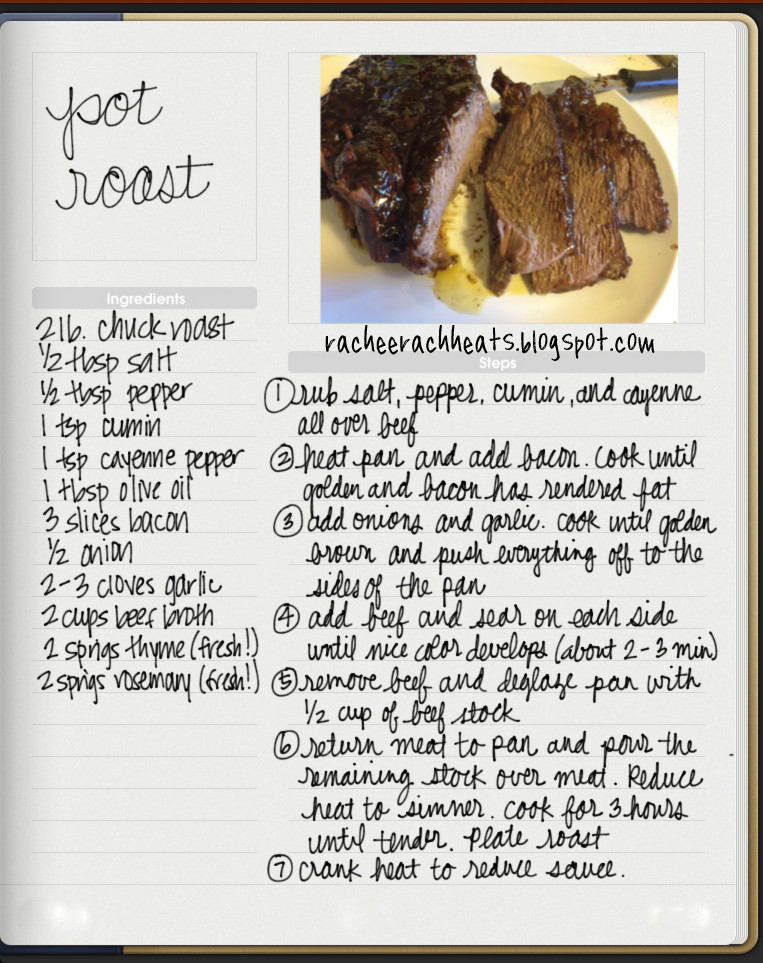 pot
roast
Ingredients
2 lb. chuck roast
1/2 tbsp salt
1/2 tbsp pepper
1 tsp cumin
1 tsp cayenne pepper
1 tbsp olive oil
3 slices bacon
1/2 onion
2-3 cloves garlic
2 cups beef broth
2 sprigs thyme (fresh!)
2 sprigs rosemary (fresh!)
racheerachheats.blogspot.com
Steps
① rub salt, pepper, cumin, and cayenne
all over beef
② heat pan and add bacon. Cook until
golden and bacon has rendered fat
③ add onions and garlic. cook until golden
brown and push everything off to the
sides of the pan
④ add beef and sear on each side
until nice color develops (about 2-3 min)
⑤ remove beef and deglaze pan with
1/2 cup of beef stock
⑥ return meat to pan and pour the
remaining stock over meat. Reduce
heat to simmer. Cook for 3 hours
until tender. Plate roast
⑦ crank heat to reduce sauce.